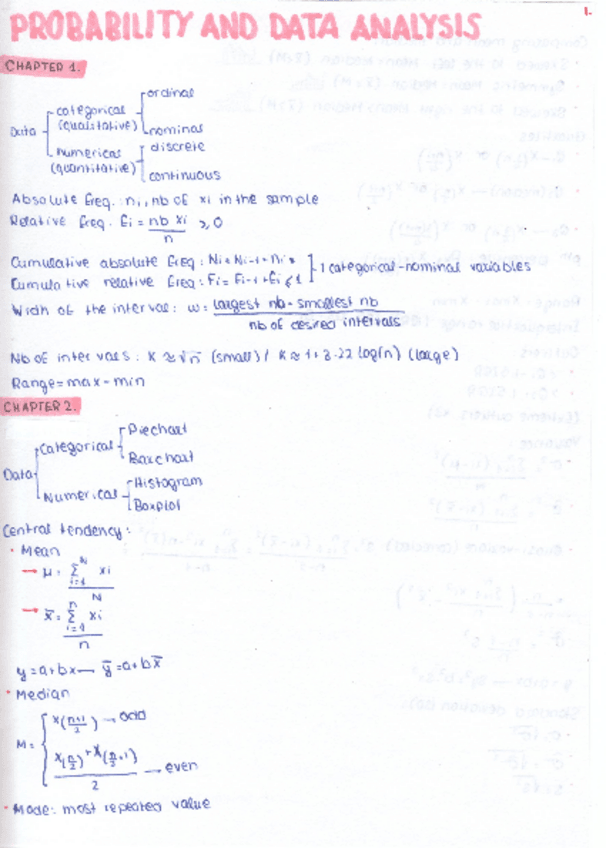 1.
PROBABILITY AND DATA ANALYSIS
CHAPTER 1.
Data
categorical (qualitative)
ordinal
nominal
numerical (quantitative)
discrete
continuous
Absolute freq.: ni, nb of xi in the sample
Relative freq. fi = nb xi / n ≥ 0
Cumulative absolute freq: Ni = Ni-1 + ni
Cumulative relative freq: Fi = Fi-1 + fi ≤ 1
categorical-nominal variables
Width of the interval: w = largest nb - smallest nb / nb of desired intervals
Nb of intervals: K ≈ √n (small) / K ≈ 1+3.22 log(n) (large)
Range = max - min
CHAPTER 2.
Data
Categorical
Piechart
Barchart
Numerical
Histogram
Boxplot
Central tendency:
• Mean
→ μ = Σ i=1 N xi / N
→ x̄ = Σ i=1 n xi / n
y = a+bx — ȳ = a+bx̄
• Median
M = { x(n+1/2) → odd
x(n/2) + x(n/2+1) / 2 → even
• Mode: most repeated value